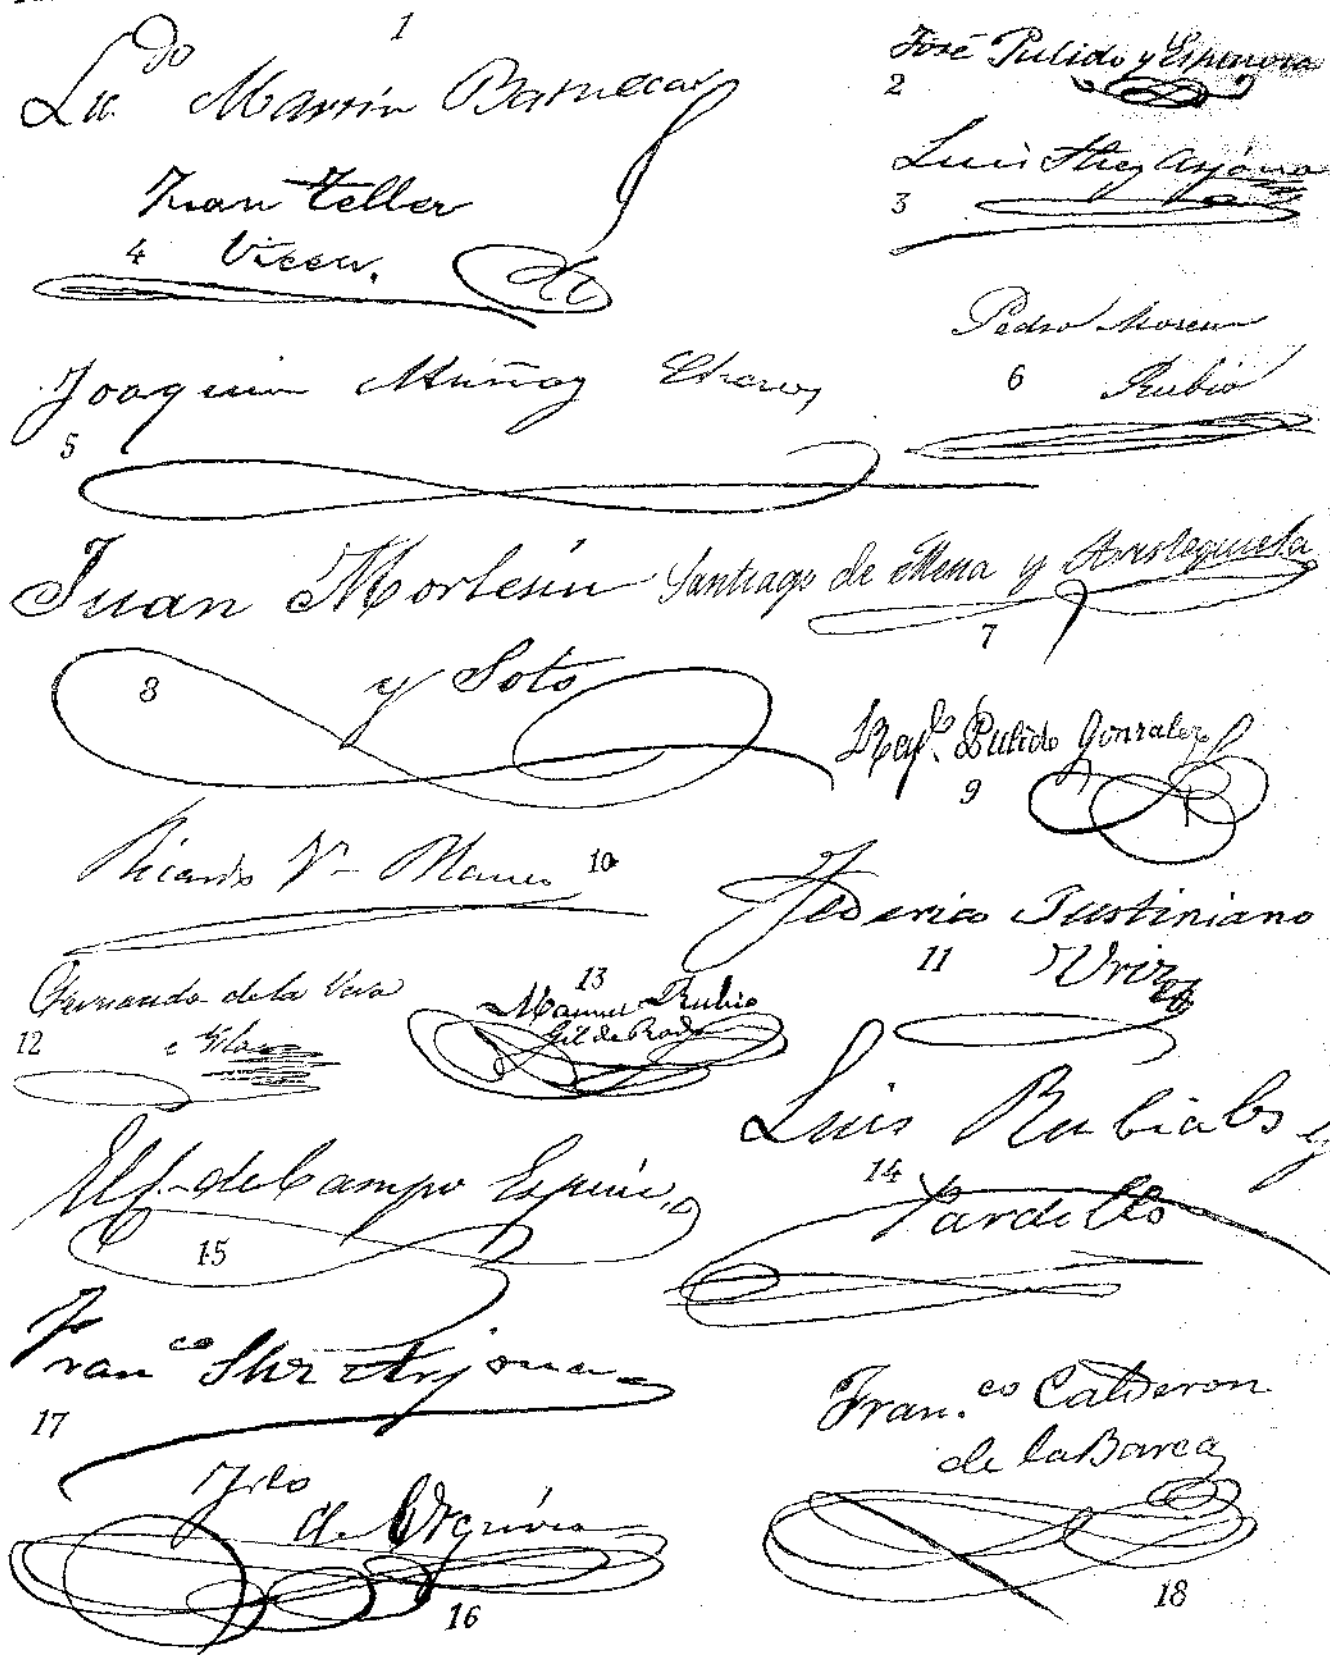 1
Lic.do Martín Barnecar
José Pulido y Espinosa
2
Luis Shez Arjona
3
Juan Teller
4 Vicen.
Pedro Moreno
6 Rubio
Joaquin Muñoz
5
Juan Morlesín
y Soto
8
Santiago de Mena y Aristeguieta
7
Raf.l Pulido Gonzalez
9
Ricardo V- Blanco 10
Federico Justiniano
11 Uriz
Fernando de la Vera
12 e Isla
13
Manuel Rubio
Gil de Rod
Luis Rubiales y
14 Pardillo
Alf.- del Campo
15
Fran co Shz Arjona
17
Fran.co Calderon
de la Barca
18
de
16